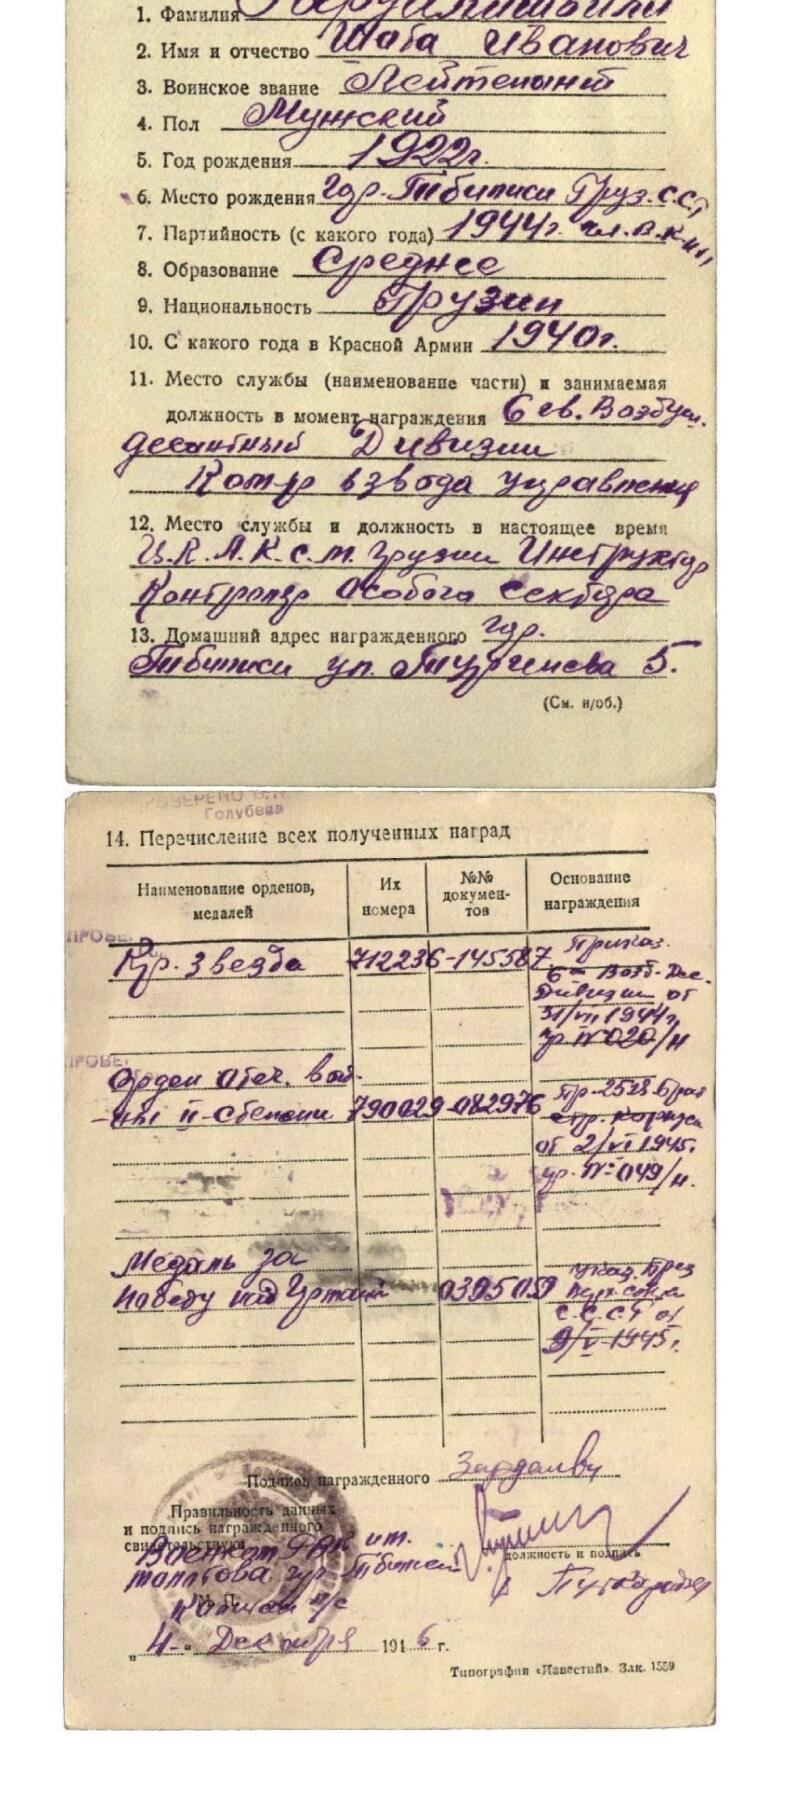 1. Фамилия
2. Имя и отчество Шота Иванович
3. Воинское звание Лейтенант
4. Пол Мужский
5. Год рождения 1922г.
6. Место рождения Гор. Тбилиси Груз. С.С.Р
7. Партийность (с какого года) 1944г. чл. В.К.П
8. Образование Среднее
9. Национальность Грузин
10. С какого года в Красной Армии 1940г.
11. Место службы (наименование части) и занимаемая
должность в момент награждения 6 гв. Воздуш.
десантный Дивизии
Ком-р взвода управления
12. Место службы и должность в настоящее время
Ц.К.Л.К.С.М. Грузии Инструктор
Контролер Особого Сектора
13. Домашний адрес награжденного гор.
Тбилиси ул. Тургенева 5.
(См. н/об.)
Голубева
14. Перечисление всех полученных наград
Наименование орденов, медалей Их номера №№ докумен-тов Основание награждения
Кр. Звезда 712236-145587 Приказ.
6 Возд. Дес.
Дивизии от
31/VII 1944г,
№020/н
Орден Отеч. Вой-
ны II-степени 790029-082976
стр. корпуса
от 2/VI 1945.
пр. №049/н.
Медаль за
победу над Германи 0395059 Указ. През
Верх. Сов.
С.С.С.Р от
9/V-1945г.
Подпись награжденного
Правильность данных
и подпись награжденного
свидетельствую
должность и подпись
Военком РВК им.
гор Тбилиси
М. П.
Капитан
„4-“ Декабря 1946 г.
Типография «Известий». Зак. 1559